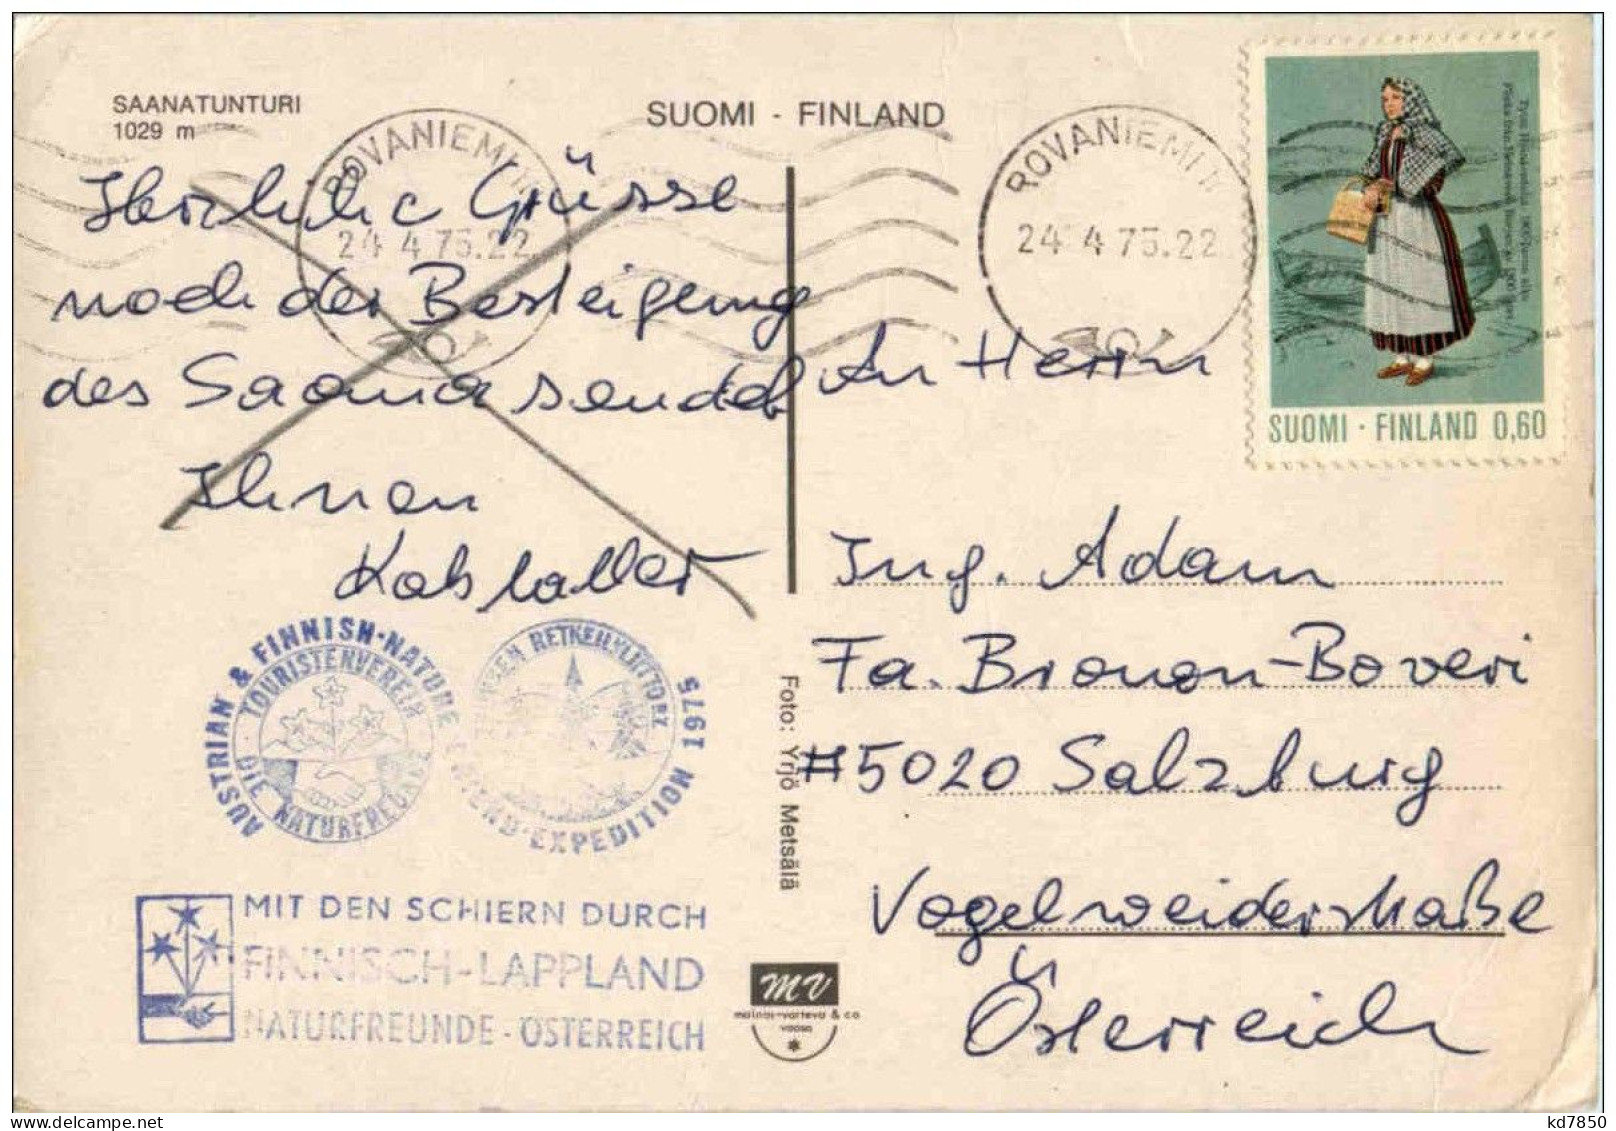 SAANATUNTURI
1029 m
SUOMI - FINLAND
ROVANIEMI
24.4.75.22
ROVANIEMI
24.4.75.22
SUOMI · FINLAND 0,60
Herzliche Grüsse
nach der Besteigung
des Saana sendet
Ihnen
Kobstaller
An Herrn
Ing. Adam
Fa. Brown-Boveri
5020 Salzburg
Vogelweiderstraße
Österreich
AUSTRIAN & FINNISH-NATURE FRIEND-EXPEDITION 1975
TOURISTENVEREIN
DIE NATURFREUNDE
RETKEILYLIITTO RY.
MIT DEN SCHIERN DURCH
FINNISCH-LAPPLAND
NATURFREUNDE - ÖSTERREICH
Foto: Yrjö Metsälä
MV
mainos-varteva & co
vaasa
kd7850